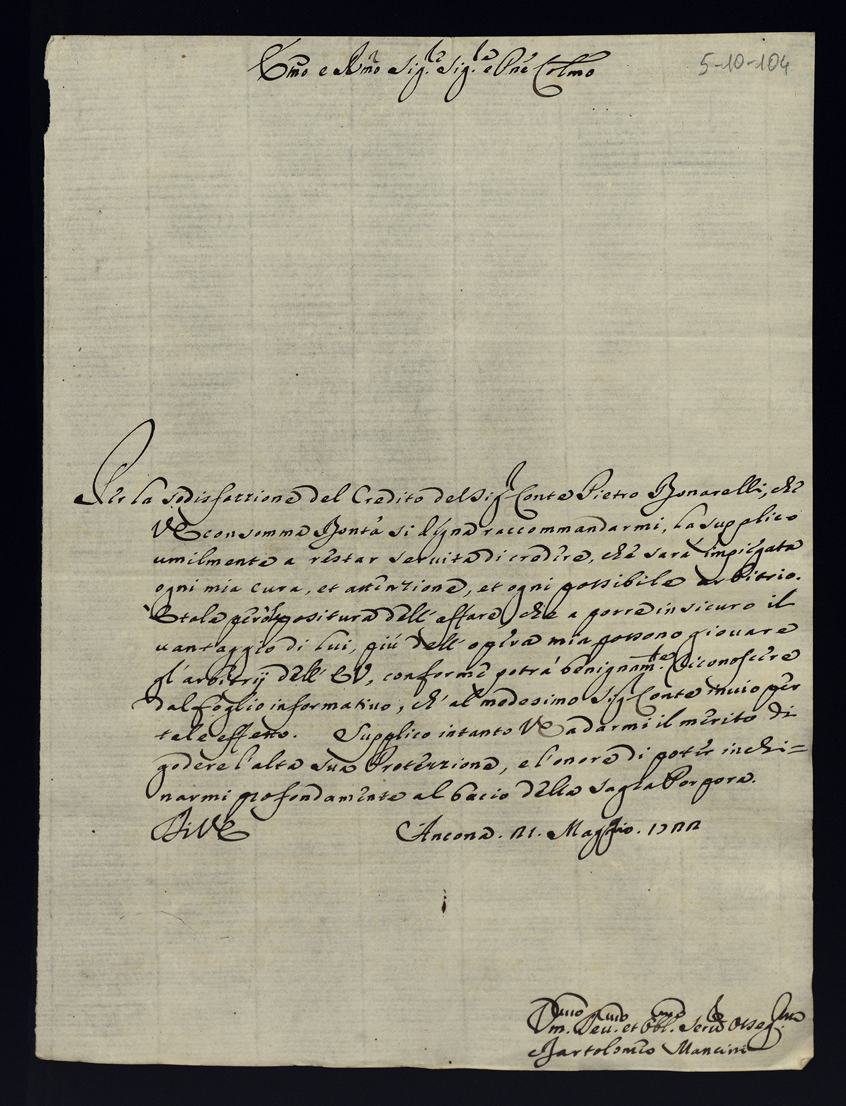 Emo e Rmo Sig.re Sig.re e Pne Colmo
5-10-104
Per la sodisfazzione del Credito del Sig.r Conte Pietro Bonarelli, che
VE con somma Bontà si degna raccommandarmi, la supplico
umilmente a restar servita di credere, che sarà impiegata
ogni mia cura, et attenzione, et ogni possibile arbitrio.
È tale però la positura dell' affare, che a porre in sicuro il
vantaggio di lui, più dell' opera mia possono giovare
gl' arbitrij dell' EV, conforme potrà benignam.te riconoscere
dal foglio informativo, ch' al medesimo Sig.r Conte invio per
tale effetto. Supplico intanto VE a darmi il merito di
godere l'alta sua Protezzione, e l'onore di poter inchi=
narmi profondamente al bacio della Sagra Porpora.
Di VE Ancona. 21. Maggio. 1722
Vm.mo Dev.mo et Obl.mo Serv.re Osseq.mo
Bartolomeo Mancini